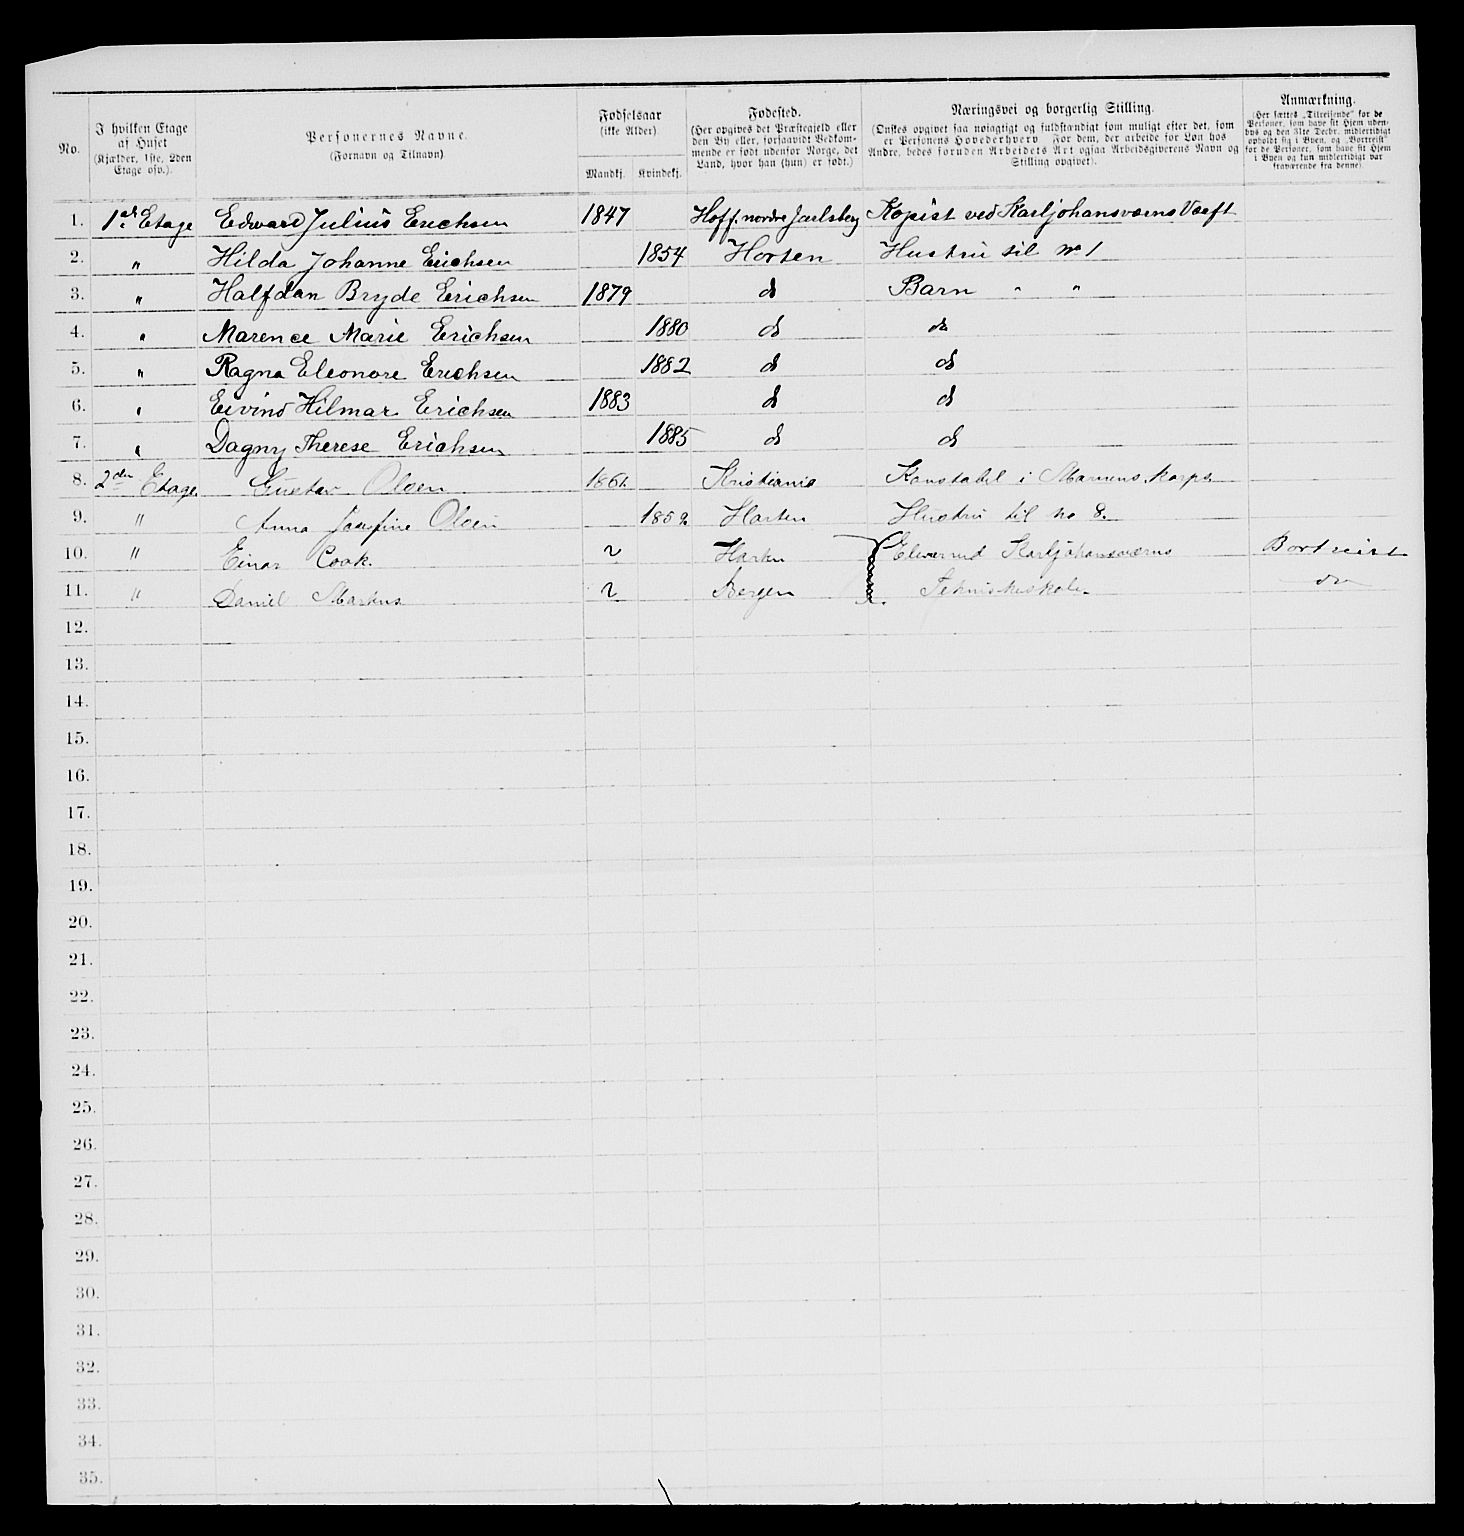 No.
I hvilken Etage
af Huset
(Kjælder, 1ste, 2den
Etage osv.).
Personernes Navne.
(Fornavn og Tilnavn)
Fødselsaar
(ikke Alder)
Mandkj. Kvindekj.
Fødested.
(Her opgives det Præstegjeld eller
den By eller, forsaavidt Vedkom-
mende er født udenfor Norge, det
Land, hvor han (hun) er født.)
Næringsvei og borgerlig Stilling.
(Ønskes opgivet saa nøiagtigt og fuldstændigt som muligt efter det, som
er Personens Hovederhverv For dem, der arbeide for Løn hos
Andre, bedes foruden Arbeidets Art ogsaa Arbeidsgiverens Navn og
Stilling opgivet).
Anmærkning.
(Her sættes „Tilreisende" for de
Personer, som have sit Hjem uden-
bys og den 31te Decbr. midlertidigt
opholdt sig i Byen, og „Bortreist"
for de Personer, som have sit Hjem
i Byen og kun midlertidigt var
fraværende fra denne).
1. 1st Etage Edward Julius Erichsen 1847 Hoff. nordre Jarlsberg Kopist ved Karljohansværns Værft
2. " Hilda Johanne Erichsen 1854 Horten Hustru til No 1
3. " Halfdan Bryde Erichsen 1879 do Barn " "
4. " Marence Marie Erichsen 1880 do do
5. " Ragna Eleonore Erichsen 1882 do do
6. " Eivind Hilmar Erichsen 1883 do do
7. " Dagny Therese Erichsen 1885 do do
8. 2den Etage Gustav Olsen 1861 Kristiania Konstabel i Marinens Korps
9. " Anna Josefine Olsen 1852 Horten Hustru til no 8.
10. " Einar Cook. ? Horten Elever ved Karljohansværns Bortreist
11. " Daniel Markus ? Bergen Tekniskeskole. do
12.
13.
14.
15.
16.
17.
18.
19.
20.
21.
22.
23.
24.
25.
26.
27.
28.
29.
30.
31.
32.
33.
34.
35.